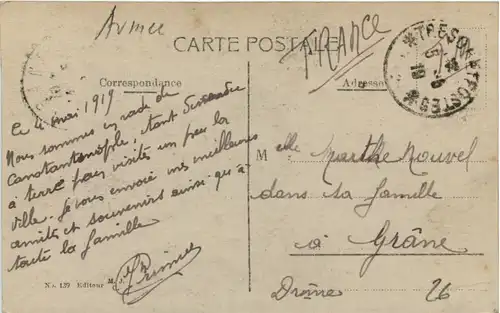 Armée
FRANCE
CARTE POSTALE
TRESOR ET POSTES
Correspondance
Adresse
Le 4 mai 1919
Nous sommes en rade de
Constantinople, étant descendu
à terre pour visiter un peu la
ville. Je vous envoie mes meilleures
amitiés et souvenirs ainsi qu'à
toute la famille
Melle Marthe Nouvel
dans sa famille
à Grâne
Drôme 26
No. 139 Editeur M. J.